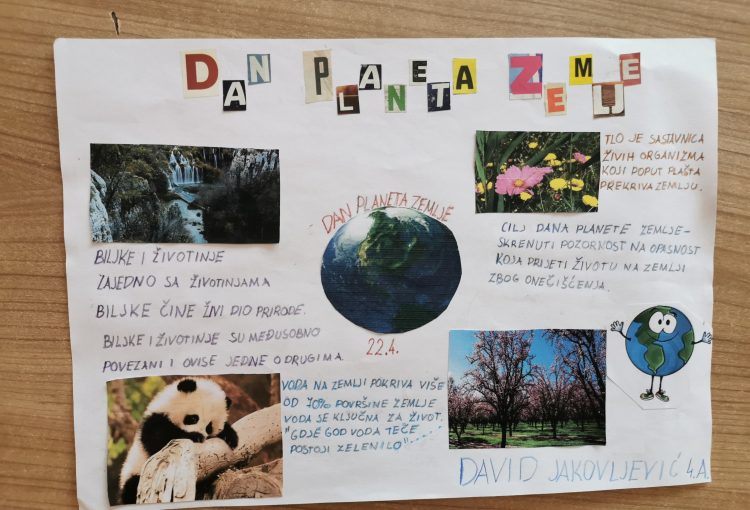 DAN PLANETA ZEMLJE
TLO JE SASTAVNICA
ŽIVIH ORGANIZMA
KOJI POPUT PLAŠTA
PREKRIVA ZEMLJU.
DAN PLANETA ZEMLJE
22.4.
CILJ DANA PLANETE ZEMLJE-
SKRENUTI POZORKOST NA OPASNOST
KOJA PRIJETI ŽIVOTU NA ZEMLJI
ZBOG ONEČIŠĆENJA.
BILJKE I ŽIVOTINJE
ZAJEDNO SA ŽIVOTINJAMA
BILJKE ČINE ŽIVI DIO PRIRODE.
BILJKE I ŽIVOTINJE SU MEĐUSOBNO
POVEZANI I OVISE JEDNE O DRUGIMA.
VODA NA ZEMLJI POKRIVA VIŠE
OD 70% POVRŠINE ZEMLJE
VODA SE KLJUČNA ZA ŽIVOT.
"GDJE GOD VODA TEČE
POSTOJI ZELENILO"......
DAVID JAKOVLJEVIĆ 4.A.